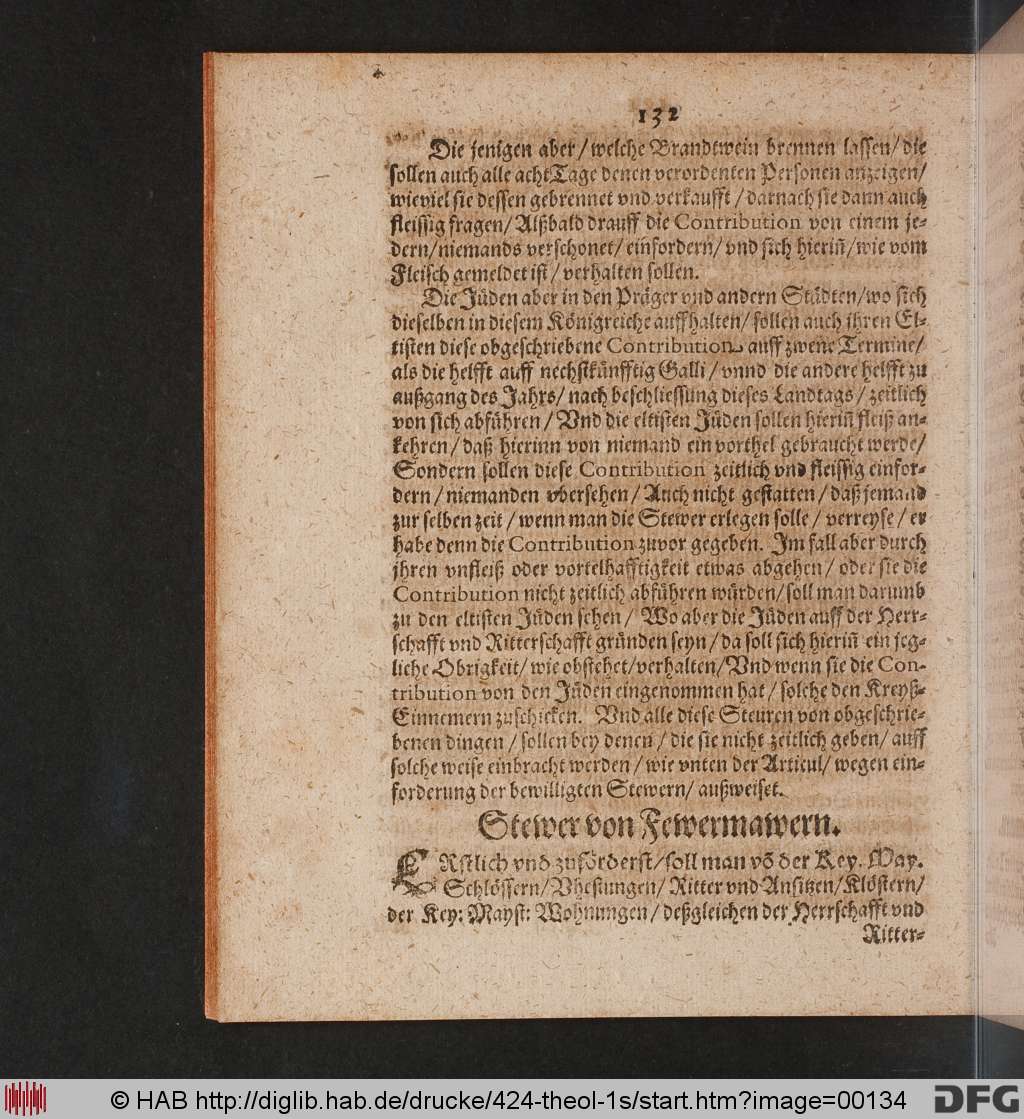 132
Die jenigen aber / welche Brandtwein brennen lassen / die
sollen auch alle acht Tage denen verordenten Personen anzeigen /
wieviel sie dessen gebrennet vnd verkaufft / darnach sie dann auch
fleissig fragen / Alßbald drauff die Contribution von einem je-
dern / niemands verschonet / einfordern / vnd sich hieriñ / wie vom
Fleisch gemeldet ist / verhalten sollen.
Die Jüden aber in den Präger vnd andern Städten / wo sich
dieselben in diesem Königreiche auffhalten / sollen auch jhren El-
tisten diese obgeschriebene Contribution auff zwene Termine /
als die helfft auff nechstkünfftig Galli / vnnd die andere helfft zu
außgang des Jahrs / nach beschliessung dieses Landtags / zeitlich
von sich abführen / Vnd die eltisten Jüden sollen hieriñ fleiß an-
kehren / daß hierinn von niemand ein vorthel gebraucht werde /
Sondern sollen diese Contribution zeitlich vnd fleissig einfor-
dern / niemanden vbersehen / Auch nicht gestatten / daß jemand
zur selben zeit / wenn man die Stewer erlegen solle / verreyse / er
habe denn die Contribution zuvor gegeben. Im fall aber durch
jhren vnfleiß oder vortelhafftigkeit etwas abgehen / oder sie die
Contribution nicht zeitlich abführen würden / soll man darumb
zu den eltisten Jüden sehen / Wo aber die Jüden auff der Herr-
schafft vnd Ritterschafft gründen seyn / da soll sich hieriñ ein jeg-
liche Obrigkeit / wie obstehet / verhalten / Vnd wenn sie die Con-
tribution von den Jüden eingenommen hat / solche den Kreyß-
Einnemern zuschicken. Vnd alle diese Steuren von obgeschrie-
benen dingen / sollen bey denen / die sie nicht zeitlich geben / auff
solche weise einbracht werden / wie vnten der Articul / wegen ein-
forderung der bewilligten Stewern / außweiset.
Stewer von Fewermawern.
ERstlich vnd zuförderst / soll man võ der Key. May.
Schlössern / Vhestungen / Ritter vnd Ansitzen / Klöstern /
der Key: Mayst: Wohnungen / deßgleichen der Herrschafft vnd
Ritter-
© HAB http://diglib.hab.de/drucke/424-theol-1s/start.htm?image=00134
DFG